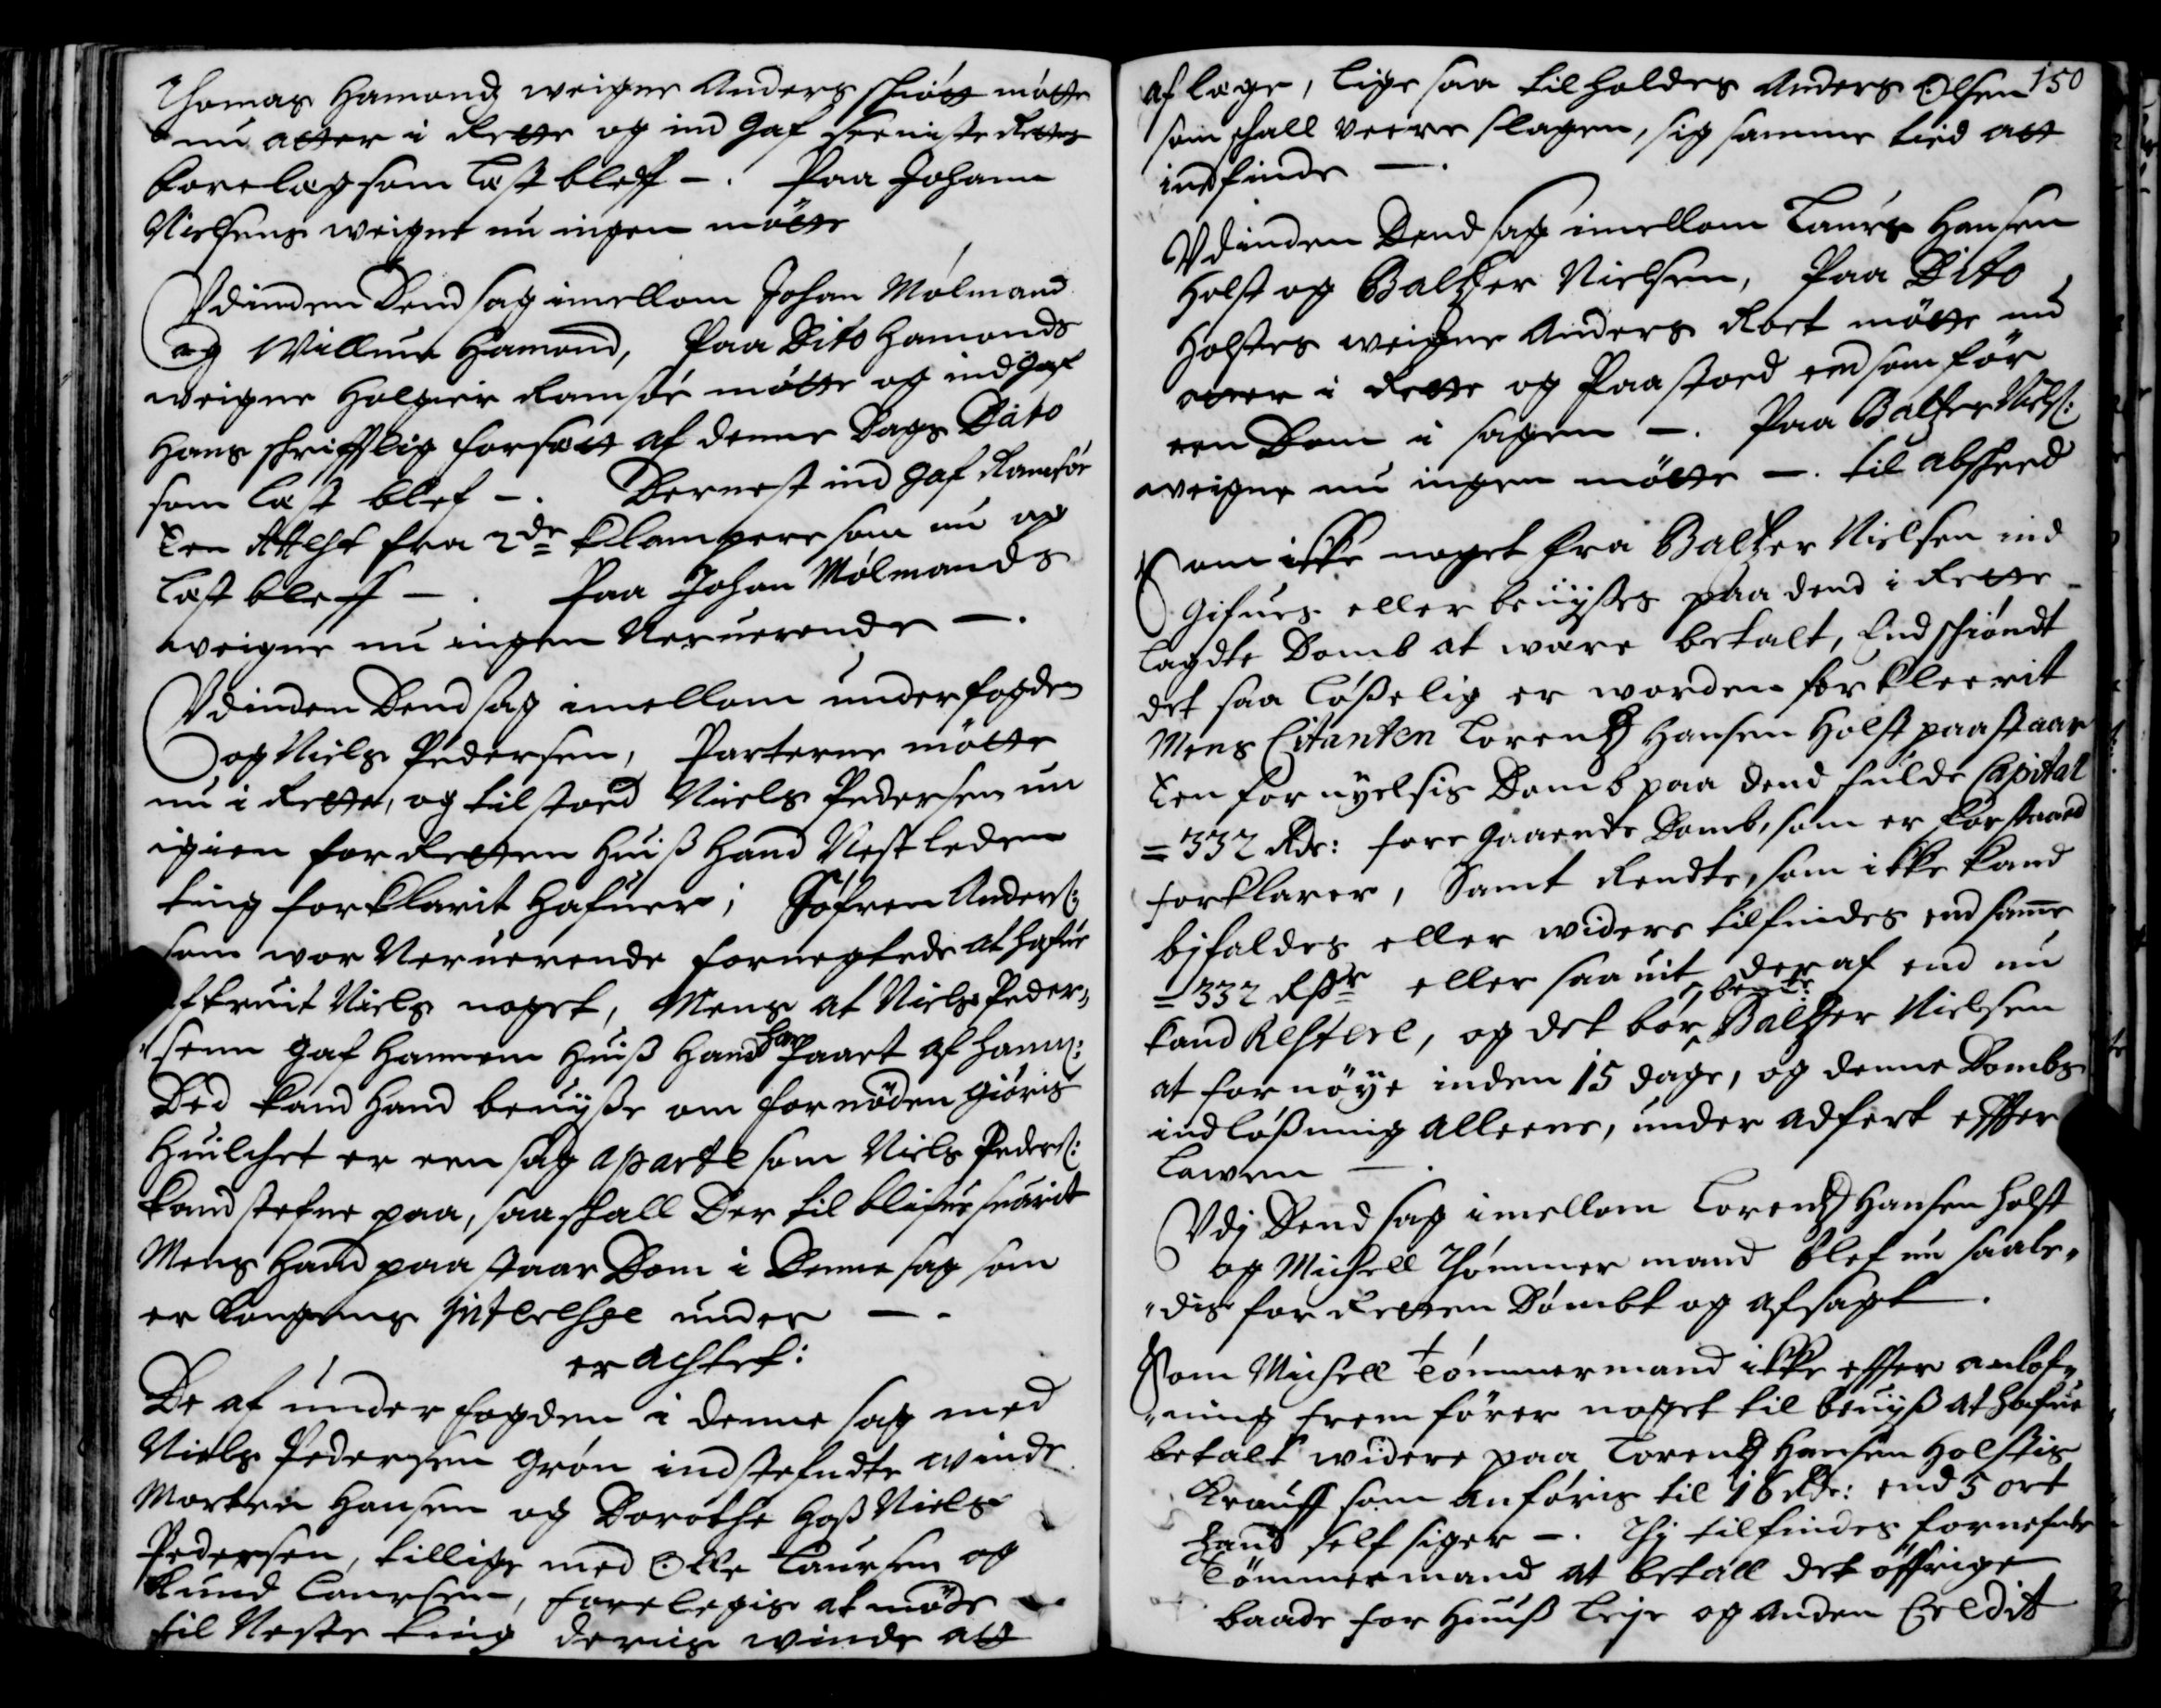 Thomas Hamonds weigne Anders schiøtt møtte
nu atter i Rette og ind gaf seeniste Rettes
forelæg som læst bleff -. Paa Johann
Nielsens weigne nu ingen møtte
Udinden Dend sag imellom Johan Mølmand
og Willum Hamond, Paa Dito Hamonds
weigne Holgier Ramsøe møtte og ind gaf
Hans schrifftlig forsætt af denne Dags Dato
som læst blef -. Dernest ind gaf Ramsøe
Een Attest fra 2de klampere som nu og
læst bleff -. Paa Johan Mølmands
weigne nu ingen Neruerende -.
Udinden Dend sag imellom underfogden
og Niels Pedersen, Parterne møtte
nu i Rette, og tilstoed Niels Pedersen nu
igien for Retten Huiß Hand Nestleden
ting forklarit Hafuer; Søfren Anders:
som war Neruerende fornegtede at hafue
aftruit Niels noget, Mens at Niels Peder-
senn gaf Hannem Huiß Hand har faaet af hann:
Ded kand Hand beuiße om fornøden giøris
Huilchet er een sag aparte som Niels Peders:
kand stefne paa, saa schall Der til blifue suarit
Mens Hand paastaar Dom i Denne sag som
er kongens Interesse under -.
er achtet:
De af underfogden i denne sag med
Niels Pedersen Grøn indstefndte winde
Morten Hansen og Dorothe Hoß Niels
Pedersen, tillige med Olle Laursen og
Knud Laursen, forelegis at møde
til Neste ting deris winde att
150
aflæge, lige saa tilholdes Anders Olsen
som schall veere slagen, sig samme tied att
indfinde -.
Udinden Dend sag imellom Laurs Hansen
Holst og Baltzer Nielsen, Paa Dito
Holstes weigne Anders Roet møtte nu
atter i Rette og Paastoed end som før
een Dom i sagen -. Paa Baltzer Niels:
weigne nu ingen møtte -. til Abscheed
Som icke noget fra Baltzer Nielsen ind
gifues eller beuißes paa dend i Rette
lagdte Domb at wære betalt, Endschiøndt
det saa løßelig er worden forkleerit
Mens Citanten Lorentz Hansen Holst paastaar
Een fornyelsis Domb paa dend fulde Capital
= 332 Rdr: foregaaende Domb, som er forstaaed
forklarer, Samt Rendte, som ikke kand
bifaldes eller widere tilfindes end samme
= 332 Rdr eller saauit deraf end nu
kand Restere, og det bør bemte: Baltzer Nielsen
at fornøye inden 15 dage, og denne Dombs
indløßning alleene, under adfert effter
Lawen -.
Udj Dend sag imellom Lorentz Hansen Holst
og Michell Thømmermand blef nu saale-
dis for Retten Dømbt og afsagt.
Som Michell Tømmermand ikke effter anlof-
ning fremfører noget til beuiß at hafue
betalt widere paa Lorentz Hansen Holstis
Krauff som anføris til 16 Rdr: end 5 ort
Hand self siger -. Thj tilfindes fornefnte
Tømmermand at betale det øffrige
baade for Huuß leje og anden Creldit